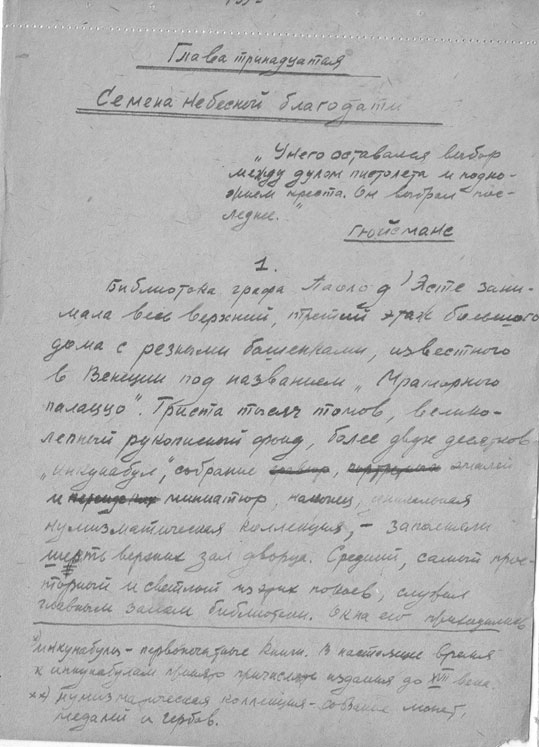 Глава тринадцатая
Семена небесной благодати
„У него оставался выбор
между дулом пистолета и подно-
жием креста. Он выбрал пос-
леднее."
Гюйсманс
1.
Библиотека графа Паоло д'Эсте зани-
мала весь верхний, третий этаж большого
дома с резными башенками, известного
в Венеции под названием „Мраморного
палаццо". Триста тысяч томов, велико-
лепный рукописный фонд, более двух десятков
„инкунабул", собрание эмалей
и миниатюр, наконец, уникальная
нумизматическая коллекция, – заполняли
шесть верхних зал дворца. Средний, самый прос-
торный и светлый из этих покоев, служил
главным залом библиотеки. Окна его приходились
инкунабулы – первопечатные книги. В настоящее время
к инкунабулам принято причислять издания до XVII века
xx) Нумизматическая коллекция – собрание монет,
медалей и гербов.